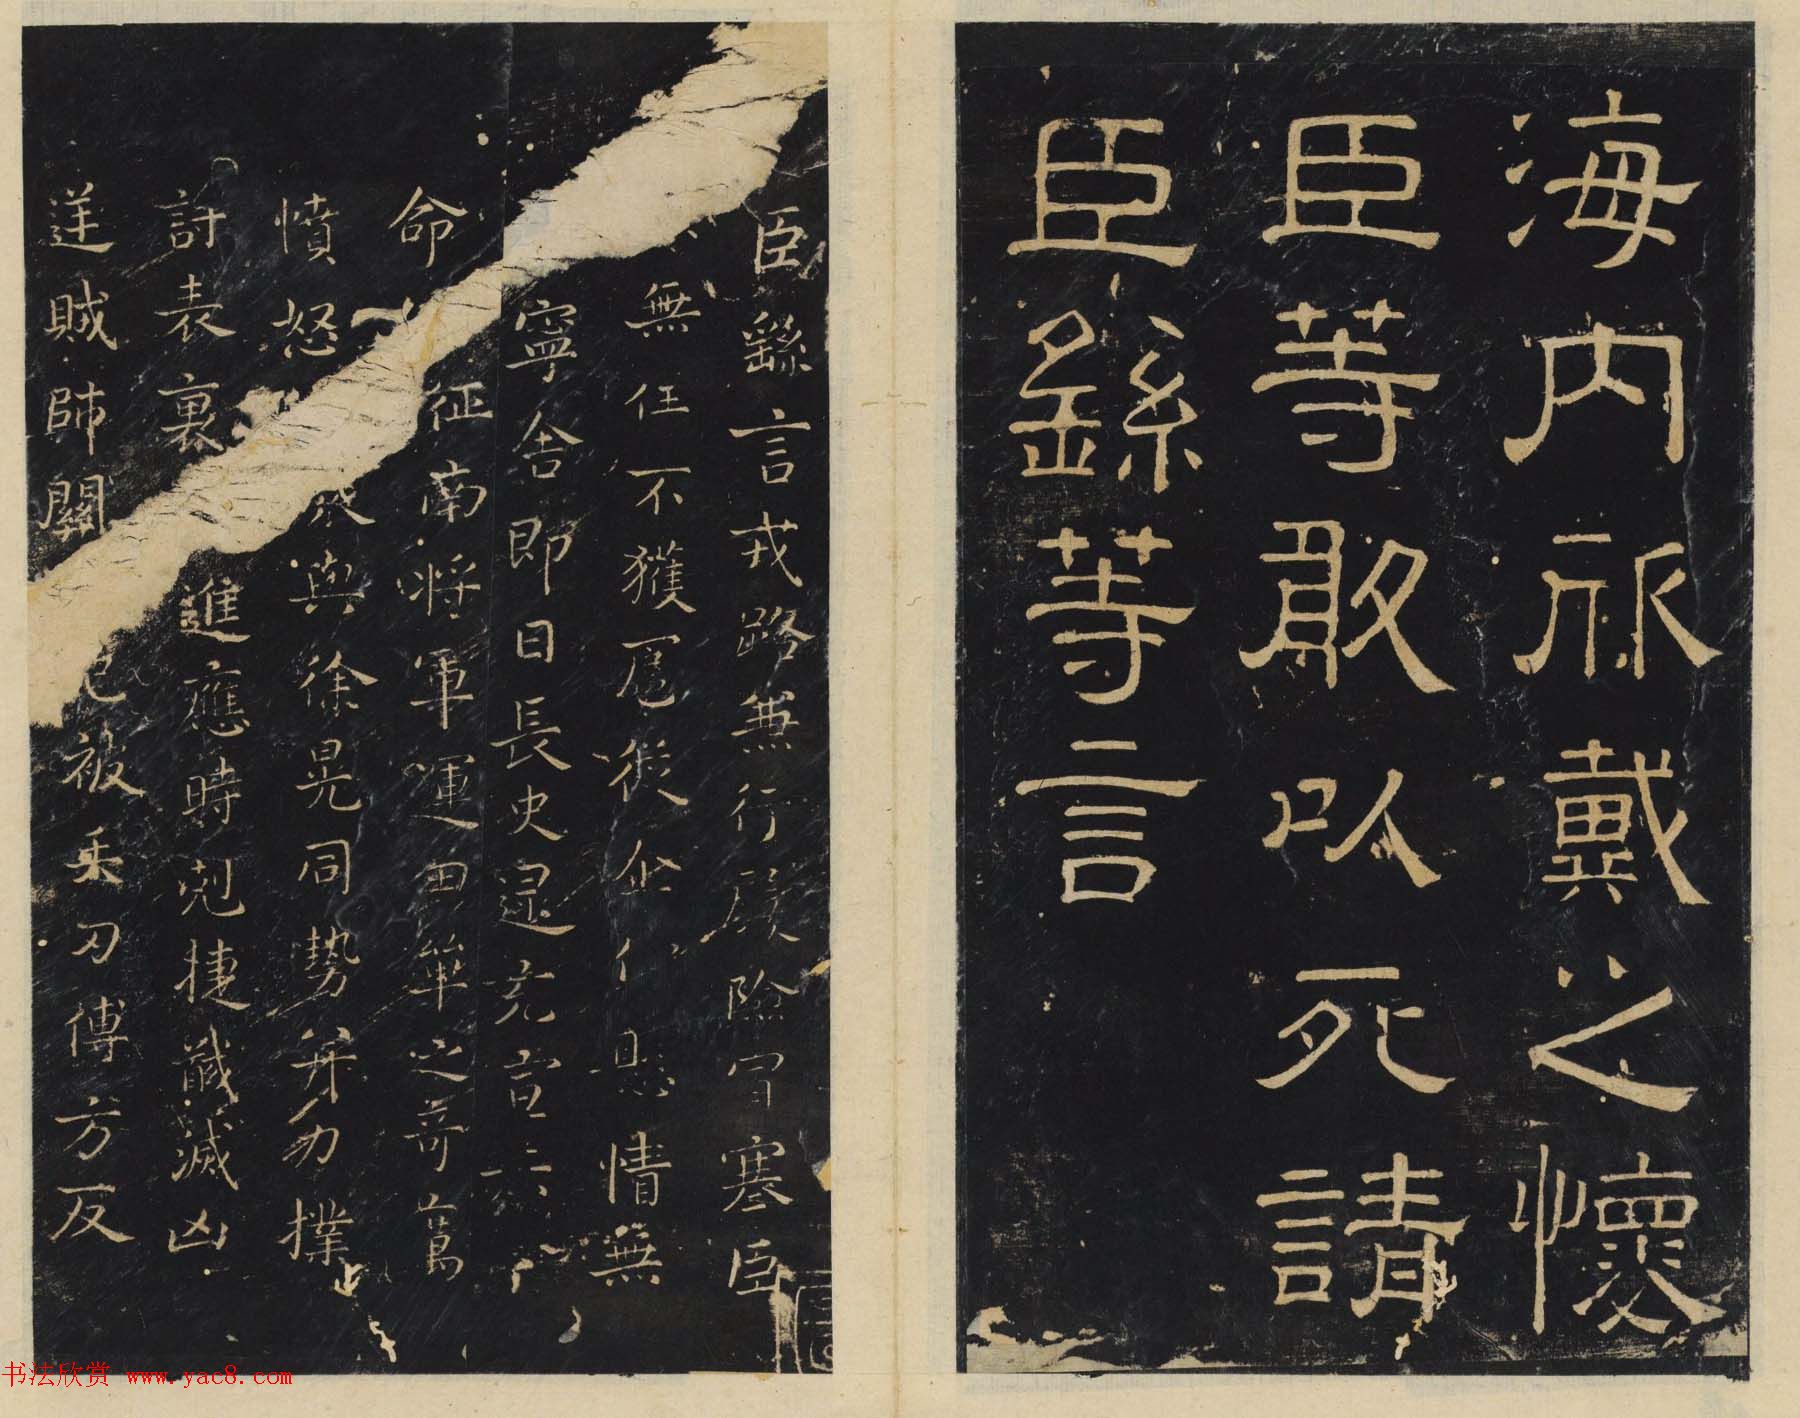 海内欣戴之懷
臣等敢以死請
臣繇等言
臣繇言戎路兼行履險冒寒臣
無任不獲扈從企仁懸情無
寧舍即日長史逯充宣示
命征南將軍運田單之奇厲
憤怒與徐晃同勢并力撲
討表裏進應時剋捷馘滅凶
逆賊帥關已被矢刃傅方反
书法欣赏 www.yac8.com